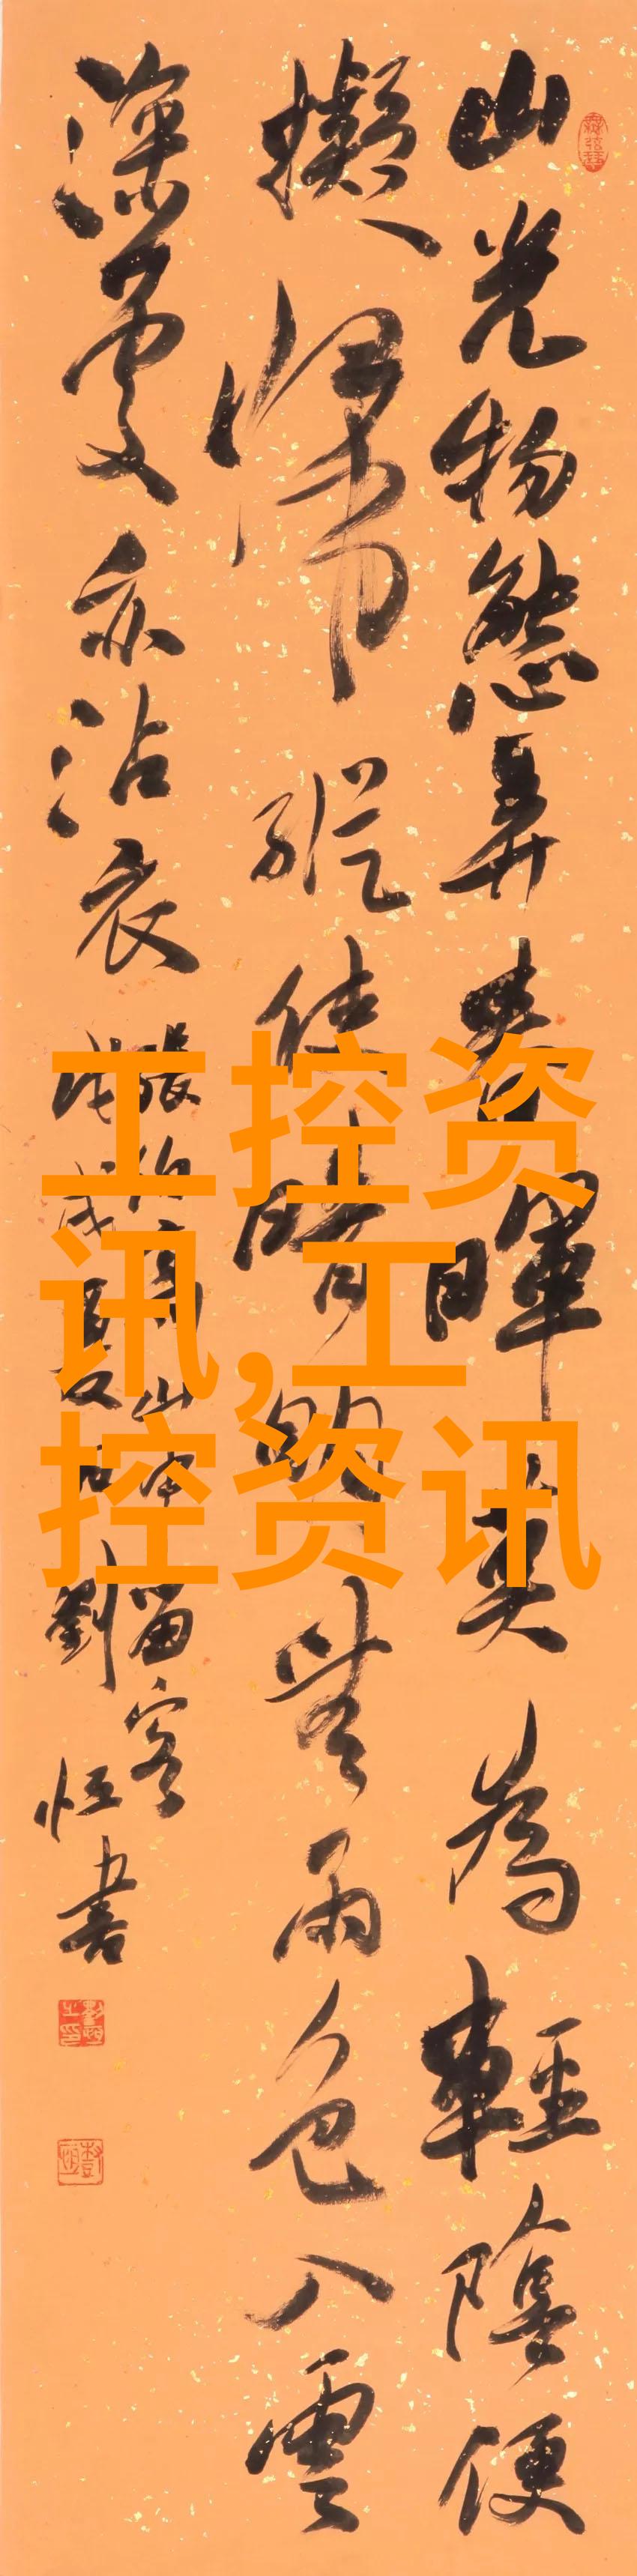 山光物態弄春暉莫為輕陰便
擬歸縱使晴明無雨色入雲
深處亦沾衣
張伯高山中留客
戊戌夏月劉恒書
工控资
讯,工
控资讯